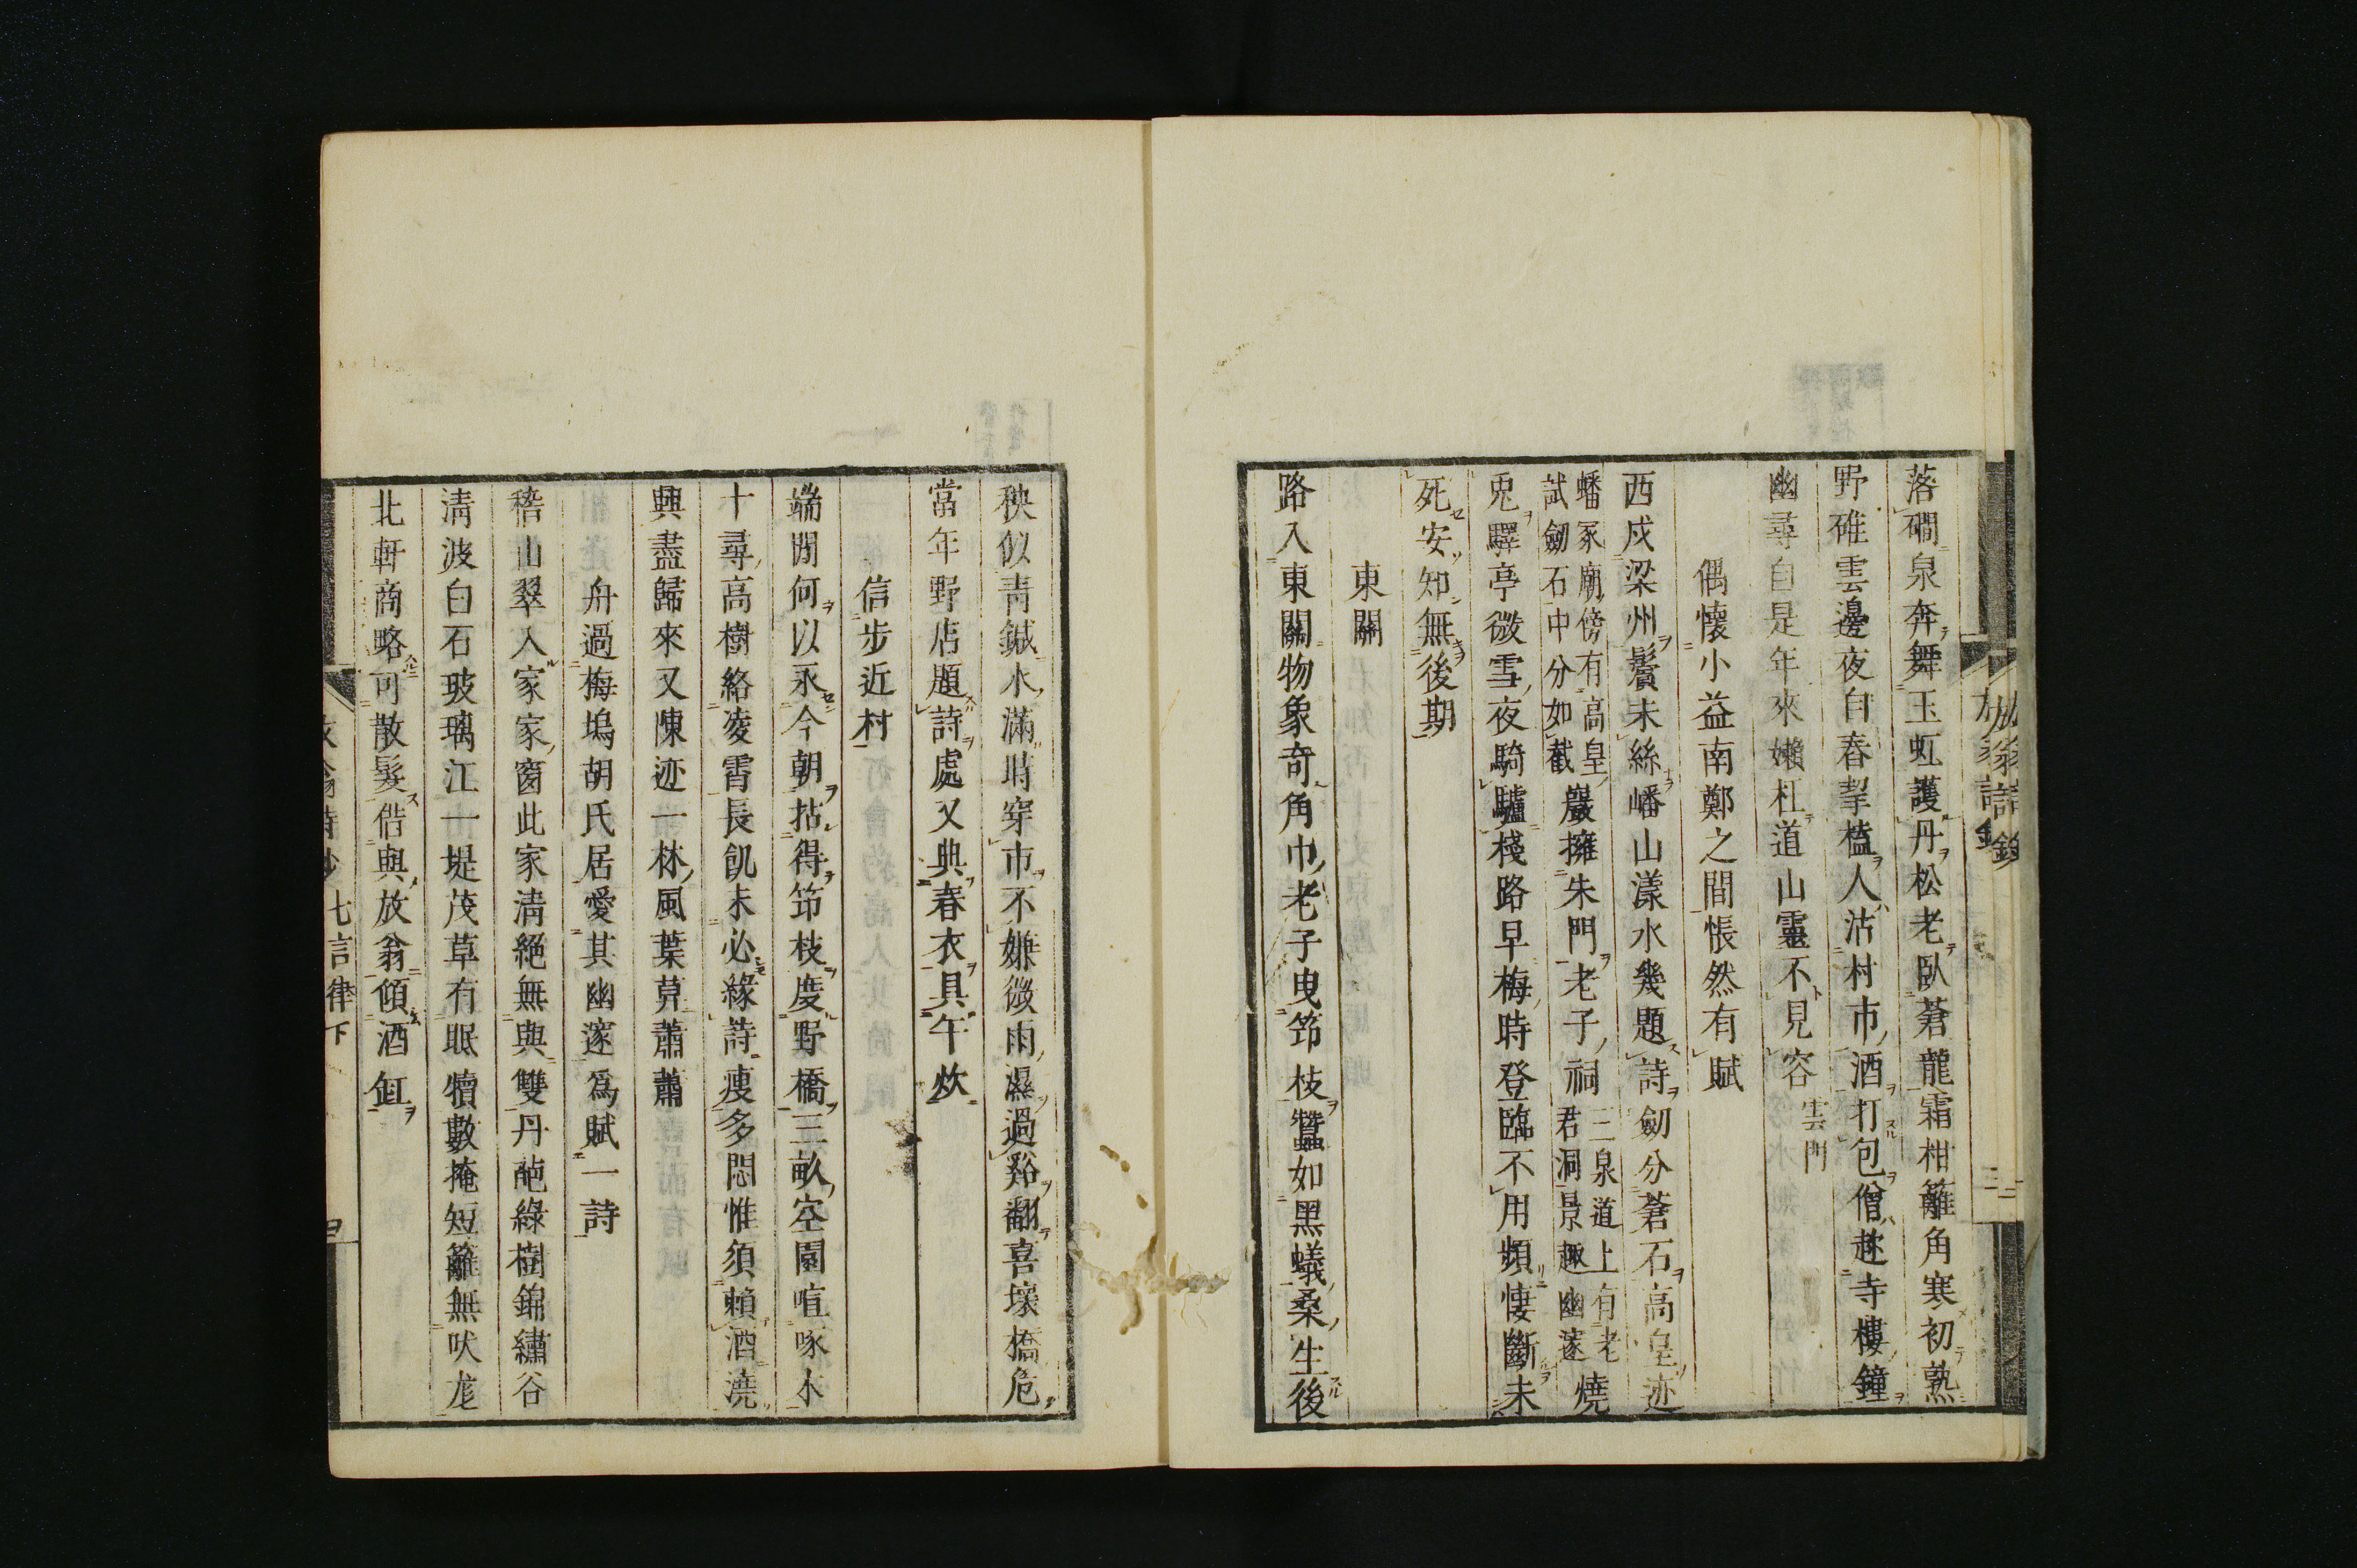 落磵泉奔舞玉虹護丹松老臥蒼龍霜柑籬角寒初熟
野碓雲邊夜自舂挈榼人沽村市酒打包僧趂寺樓鐘
幽尋自是年來嬾枉道山靈不見容雲門
偶懷小益南鄭之間悵然有賦
西戍梁州鬢未絲嶓山漾水幾題詩劒分蒼石高皇迹
蟠冢廟傍有高皇
試劒石中分如截
巖擁朱門老子祠
三泉道上有老
君洞景趣幽邃
燒
兎驛亭微雪夜騎驢棧路早梅時登臨不用頻悽斷未
死安知無後期
東關
路入東關物象奇角巾老子曳筇枝蠶如黑蟻桑生後
秧似青鍼水滿時穿市不嫌微雨濕過谿翻喜壞橋危
當年野店題詩處又典春衣具午炊
信步近村
端閒何以永今朝拈得筇枝度野橋三畝空園喧啄木
十尋高樹絡凌霄長飢未必緣詩瘦多悶惟須賴酒澆
興盡歸來又陳迹一林風葉莫蕭蕭
舟過梅塢胡氏居愛其幽邃爲賦一詩
稽山翠入家家窗此家淸絕無與雙丹葩綠樹錦繡谷
淸波白石玻璃江一堤茂草有眠犢數掩短籬無吠尨
北軒商略可散髮偕與放翁傾酒缸
放翁詩鈔 七言律下